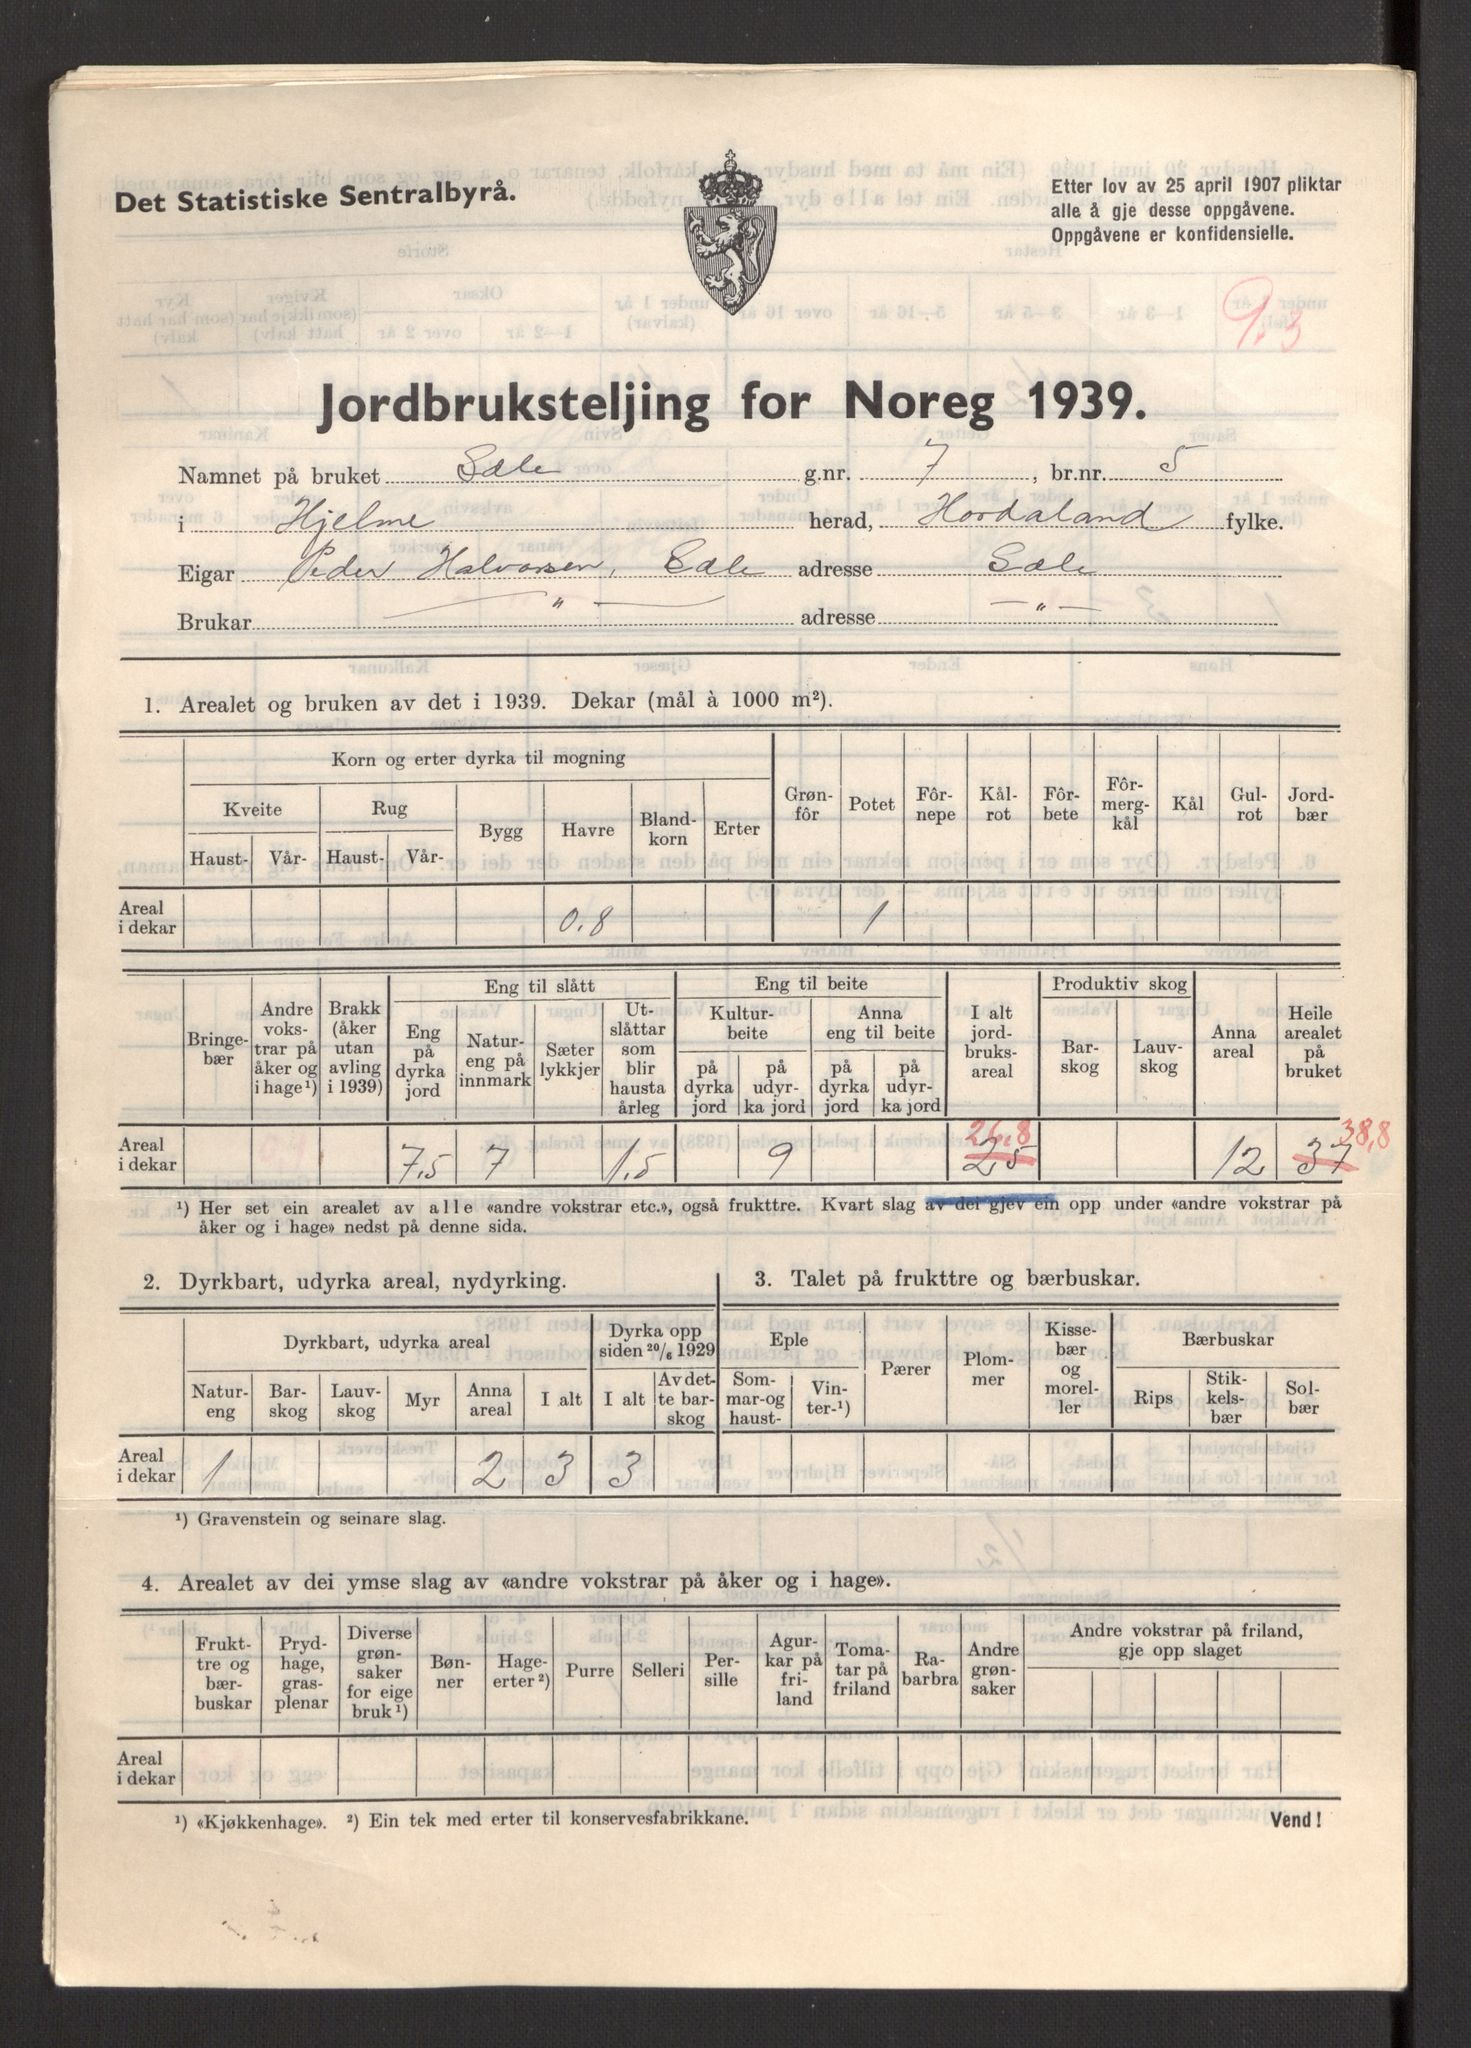 Det Statistiske Sentralbyrå.
Etter lov av 25 april 1907 pliktar
alle å gje desse oppgåvene.
Oppgåvene er konfidensielle.
9.3
Jordbruksteljing for Noreg 1939.
Namnet på bruket Sæle g.nr. 7, br.nr. 5
i Hjelme herad, Hordaland fylke.
Eigar Peder Halvorsen, Sæle adresse Sæle
Brukar — " — adresse — " —
1. Arealet og bruken av det i 1939. Dekar (mål à 1000 m²).
Korn og erter dyrka til mogning
Kveite Rug Bygg Havre Bland-korn Erter Grøn-fôr Potet Fôr-nepe Kål-rot Fôr-bete Fôr-mergkål Kål Gul-rot Jord-bær
Haust- Vår- Haust- Vår-
Areal i dekar 0.8 1
Eng til slått Eng til beite Produktiv skog
Bringe-bær Andre vokstrar på åker og i hage¹) Brakk (åker utan avling i 1939) Eng på dyrka jord Natureng på innmark Sæter lykkjer Utslåttar som blir hausta årleg Kulturbeite Anna eng til beite I alt jordbruksareal Bar-skog Lauv-skog Anna areal Heile arealet på bruket
på dyrka jord på udyrka jord på dyrka jord på udyrka jord
26.8 38,8
Areal i dekar 7.5 7 1.5 9 25 12 37
¹) Her set ein arealet av alle «andre vokstrar etc.», også frukttre. Kvart slag av dei gjev ein opp under «andre vokstrar på
åker og i hage» nedst på denne sida.
2. Dyrkbart, udyrka areal, nydyrking. 3. Talet på frukttre og bærbuskar.
Dyrkbart, udyrka areal Dyrka opp siden 20/6 1929 Eple Pærer Plommer Kissebær og moreller Bærbuskar
Natureng Bar-skog Lauv-skog Myr Anna areal I alt I alt Av dette barskog Sommar-og haust- Vinter-¹) Rips Stikkelsbær Solbær
Areal i dekar 1 2 3 3
¹) Gravenstein og seinare slag.
4. Arealet av dei ymse slag av «andre vokstrar på åker og i hage».
Frukttre og bærbuskar Prydhage, grasplenar Diverse grønsaker for eige bruk¹) Bønner Hageerter²) Purre Selleri Persille Agurkar på friland Tomatar på friland Rabarbra Andre grønsaker Andre vokstrar på friland, gje opp slaget
Areal i dekar
¹) «Kjøkkenhage». ²) Ein tek med erter til konservesfabrikkane. Vend!